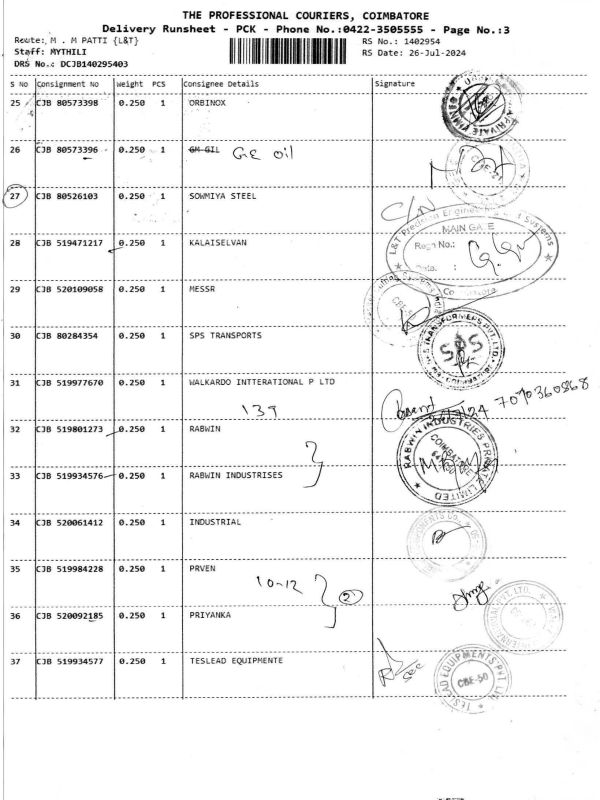 THE PROFESSIONAL COURIERS, COIMBATORE
Delivery Runsheet - PCK - Phone No.:0422-3505555 - Page No.:3
Route: M . M PATTI {L&T} RS No.: 1402954
Staff: MYTHILI RS Date: 26-Jul-2024
DRS No.: DCJB140295403
S No Consignment No Weight PCS Consignee Details Signature
25 CJB 80573398 0.250 1 ORBINOX
26 CJB 80573396 0.250 1 GM GIL GE oil
27 CJB 80526103 0.250 1 SOWMIYA STEEL
L&T Precision Engineering and Systems
MAIN GATE
28 CJB 519471217 0.250 1 KALAISELVAN Regn No.:
Date :
29 CJB 520109058 0.250 1 MESSR
30 CJB 80284354 0.250 1 SPS TRANSPORTS SPS
31 CJB 519977670 0.250 1 WALKARDO INTTERATIONAL P LTD
139
32 CJB 519801273 0.250 1 RABWIN RABWIN INDUSTRIES PRIVATE LIMITED
COIMBATORE
33 CJB 519934576 0.250 1 RABWIN INDUSTRISES
34 CJB 520061412 0.250 1 INDUSTRIAL
35 CJB 519984228 0.250 1 PRVEN
10-12 2
36 CJB 520092185 0.250 1 PRIYANKA
37 CJB 519934577 0.250 1 TESLEAD EQUIPMENTE
TESLEAD EQUIPMENTS PVT LTD
CBE-50